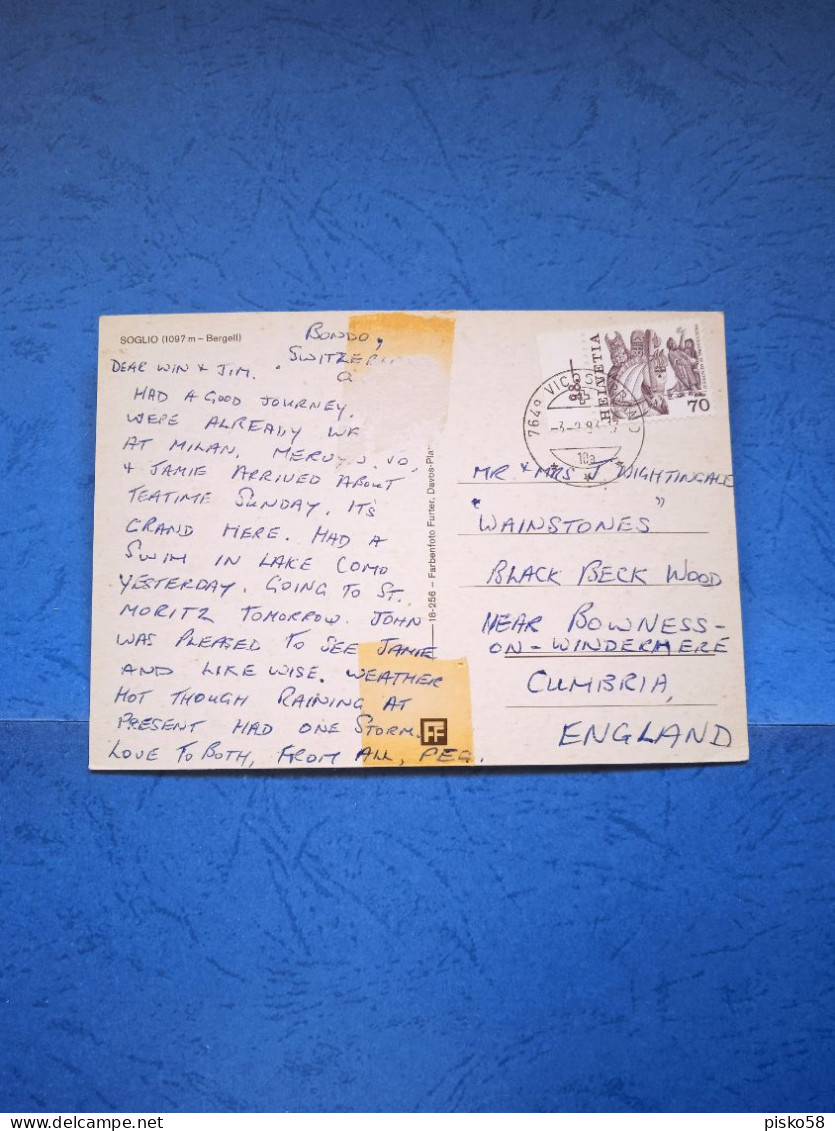 SOGLIO (1097 m – Bergell)
BONDO,
SWITZER
DEAR WIN & JIM.
HAD A GOOD JOURNEY.
WERE ALREADY
AT MILAN.
& JAMIE ARRIVED ABOUT
TEATIME SUNDAY. ITS
GRAND HERE. HAD A
SWIM IN LAKE COMO
YESTERDAY. GOING TO ST.
MORITZ TOMORROW. JOHN
WAS PLEASED TO SEE JAMIE
AND LIKE WISE. WEATHER
HOT THOUGH RAINING AT
PRESENT HAD ONE STORM.
LOVE TO BOTH, FROM ALL, PEG.
18-256 – Farbenfoto Furter, Davos-Pla
FF
HELVETIA
70
7649
10a
MR & MRS J. NIGHTINGALE
"WAINSTONES"
BLACK BECK WOOD
NEAR BOWNESS-
ON-WINDERMERE
CUMBRIA,
ENGLAND
pisko58